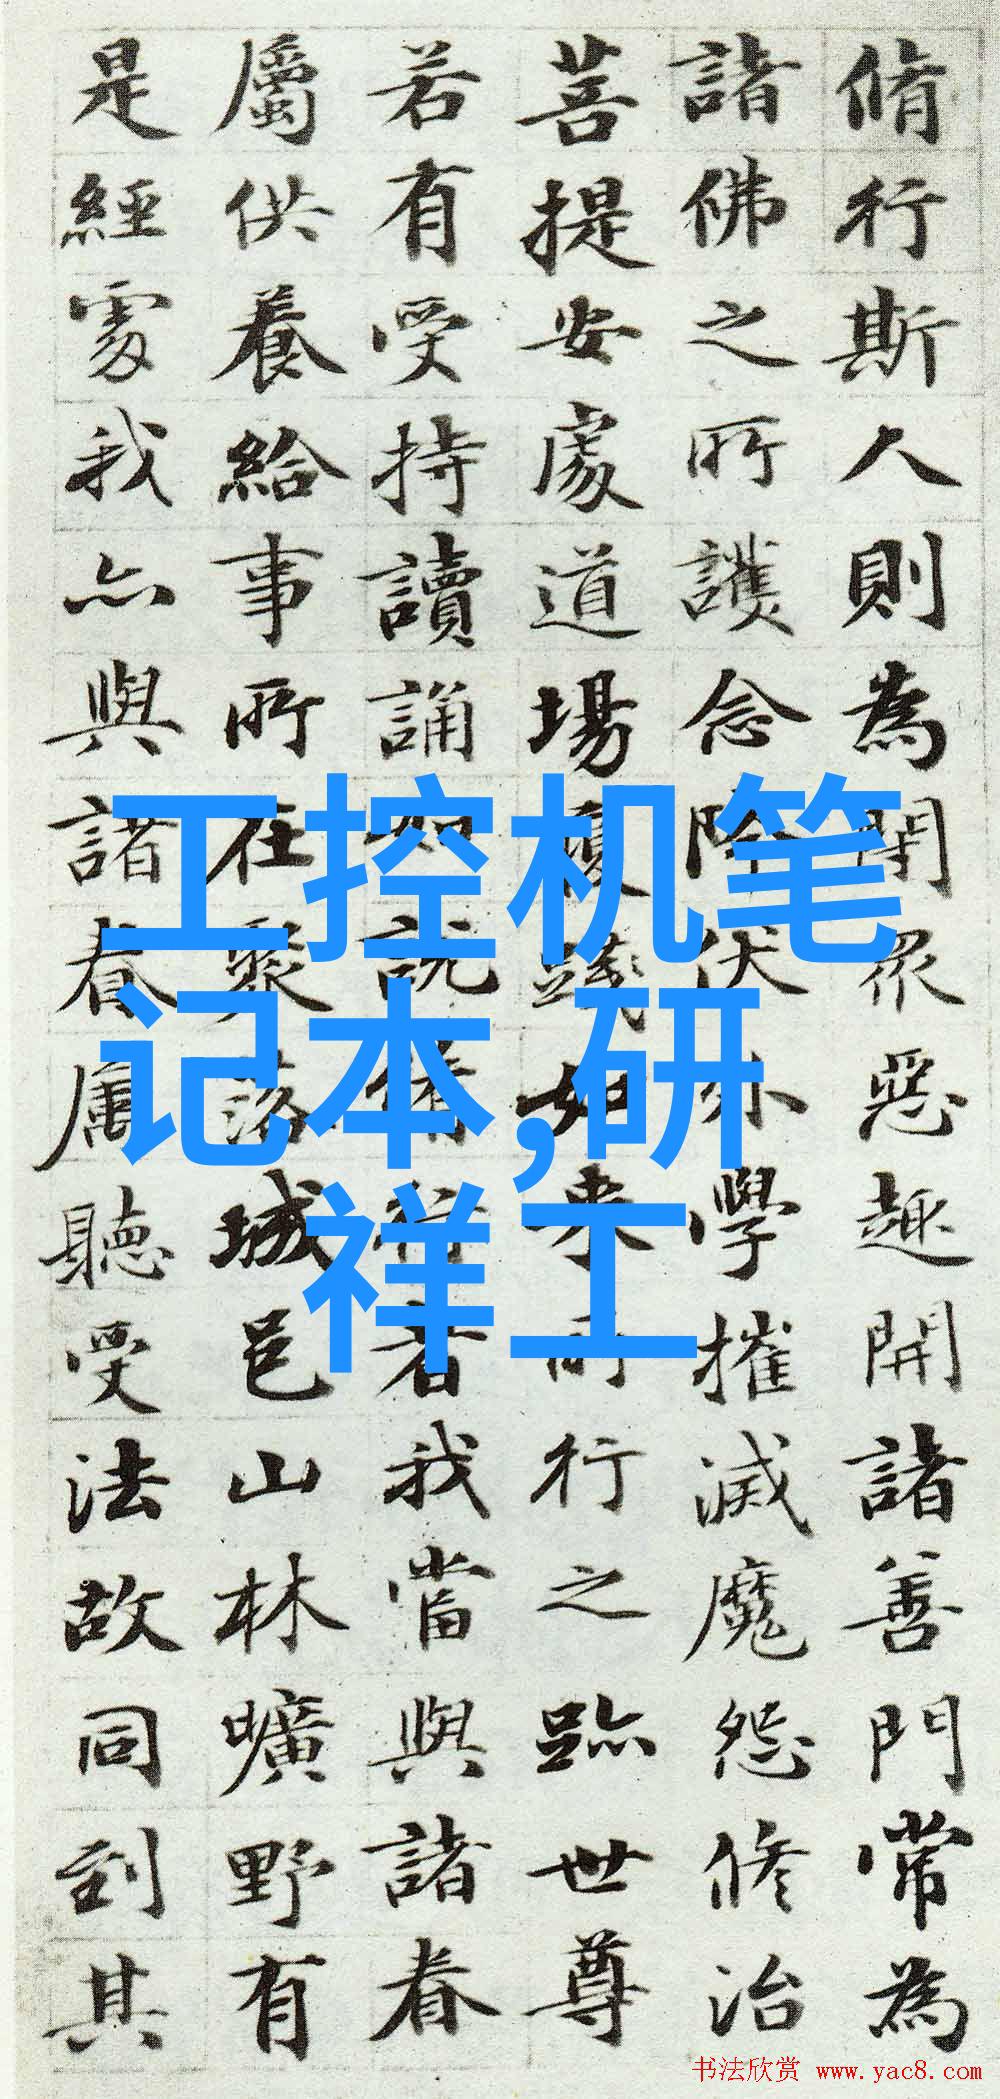 脩行斯人則為閉眾惡趣開諸善門常為
諸佛之所護念降伏外學摧滅魔怨修治
菩提安處道場履踐如來所行之跡世尊
若有受持讀誦如說脩行者我當與諸眷
屬供養給事所在聚落城邑山林曠野有
是經處我亦與諸眷屬聽受法故同到其
工控机笔
记本,研
祥工
书法欣赏 www.yac8.com